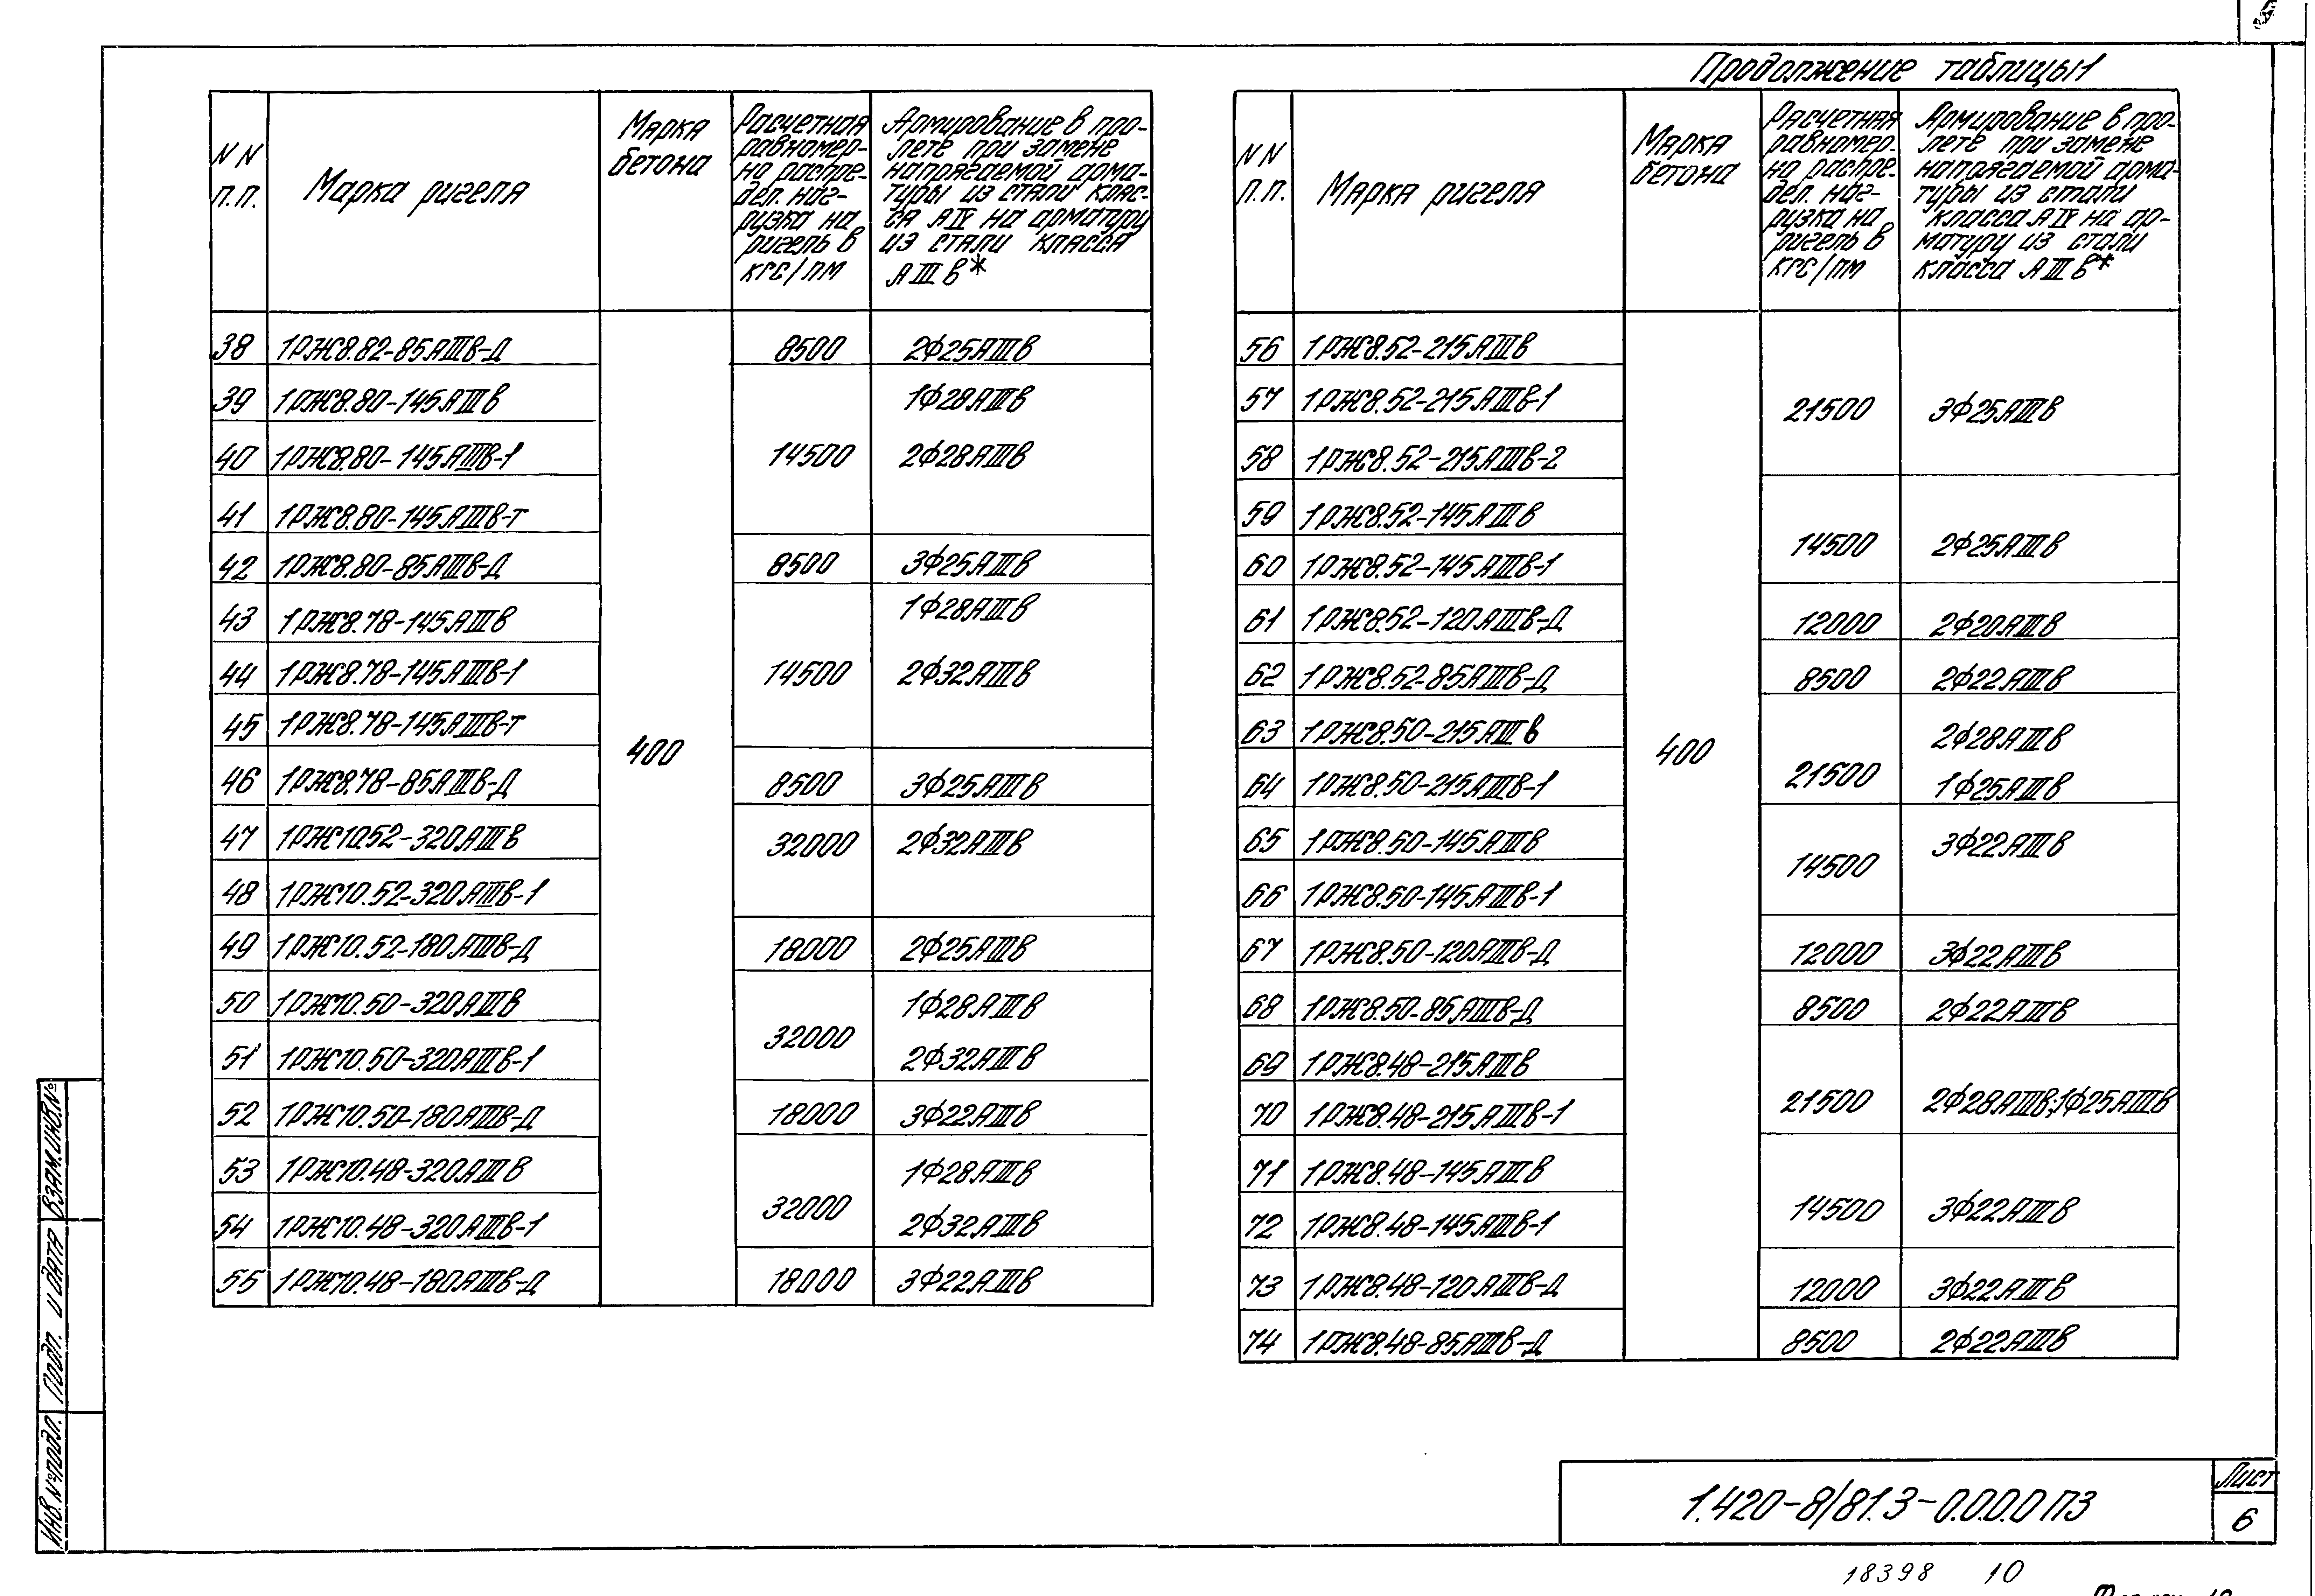 Продолжение таблицы 1
NN п.п. | Марка ригеля | Марка бетона | Расчетная равномер-но распре-дел. наг-рузка на ригель в кгс/пм | Армирование в про-лете при замене напрягаемой арма-туры из стали клас-са АIV на арматуру из стали класса АIIIв*
38 1РЖ8.82-85АIIIв-Д 8500 2Ф25АIIIв
39 1РЖ8.80-145АIIIв 1Ф28АIIIв
40 1РЖ8.80-145АIIIв-1 14500 2Ф28АIIIв
41 1РЖ8.80-145АIIIв-т
42 1РЖ8.80-85АIIIв-Д 8500 3Ф25АIIIв
43 1РЖ8.78-145АIIIв 1Ф28АIIIв
44 1РЖ8.78-145АIIIв-1 14500 2Ф32АIIIв
45 1РЖ8.78-145АIIIв-т
400
46 1РЖ8.78-85АIIIв-Д 8500 3Ф25АIIIв
47 1РЖ10.52-320АIIIв 32000 2Ф32АIIIв
48 1РЖ10.52-320АIIIв-1
49 1РЖ10.52-180АIIIв-Д 18000 2Ф25АIIIв
50 1РЖ10.50-320АIIIв 1Ф28АIIIв
32000
51 1РЖ10.50-320АIIIв-1 2Ф32АIIIв
52 1РЖ10.50-180АIIIв-Д 18000 3Ф22АIIIв
53 1РЖ10.48-320АIIIв 1Ф28АIIIв
32000
54 1РЖ10.48-320АIIIв-1 2Ф32АIIIв
55 1РЖ10.48-180АIIIв-Д 18000 3Ф22АIIIв
NN п.п. | Марка ригеля | Марка бетона | Расчетная равномер-но распре-дел. наг-рузка на ригель в кгс/пм | Армирование в про-лете при замене напрягаемой арма-туры из стали класса АIV на ар-матуру из стали класса АIIIв*
56 1РЖ8.52-215АIIIв
57 1РЖ8.52-215АIIIв-1 21500 3Ф25АIIIв
58 1РЖ8.52-215АIIIв-2
59 1РЖ8.52-145АIIIв
14500 2Ф25АIIIв
60 1РЖ8.52-145АIIIв-1
61 1РЖ8.52-120АIIIв-Д 12000 2Ф20АIIIв
62 1РЖ8.52-85АIIIв-Д 8500 2Ф22АIIIв
63 1РЖ8.50-215АIIIв 2Ф28АIIIв
400
64 1РЖ8.50-215АIIIв-1 21500 1Ф25АIIIв
65 1РЖ8.50-145АIIIв 3Ф22АIIIв
14500
66 1РЖ8.50-145АIIIв-1
67 1РЖ8.50-120АIIIв-Д 12000 3Ф22АIIIв
68 1РЖ8.50-85АIIIв-Д 8500 2Ф22АIIIв
69 1РЖ8.48-215АIIIв
70 1РЖ8.48-215АIIIв-1 21500 2Ф28АIIIв;1Ф25АIIIв
71 1РЖ8.48-145АIIIв
14500 3Ф22АIIIв
72 1РЖ8.48-145АIIIв-1
73 1РЖ8.48-120АIIIв-Д 12000 3Ф22АIIIв
74 1РЖ8.48-85АIIIв-Д 8500 2Ф22АIIIв
Инв.№подл. Подп. и дата Взам.инв.№
1.420-8/81.3-0.0.0.0ПЗ
Лист
6
18398 10